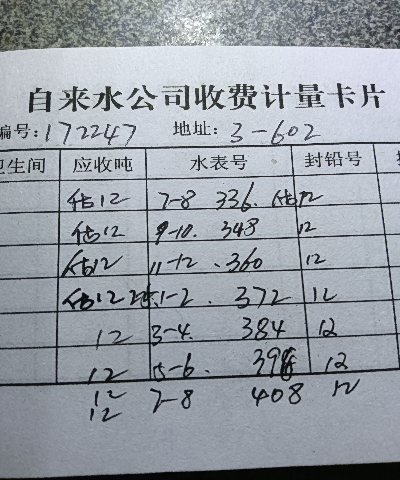 自来水公司收费计量卡片
编号:172247 地址:3-602
卫生间 应收吨 水表号 封铅号
估12 7-8 336. 估12
估12 9-10. 348 12
估12 11-12. 360 12
估12 1-2. 372 12
12 3-4. 384 12
12 5-6. 396 12
12
12 7-8 408 12